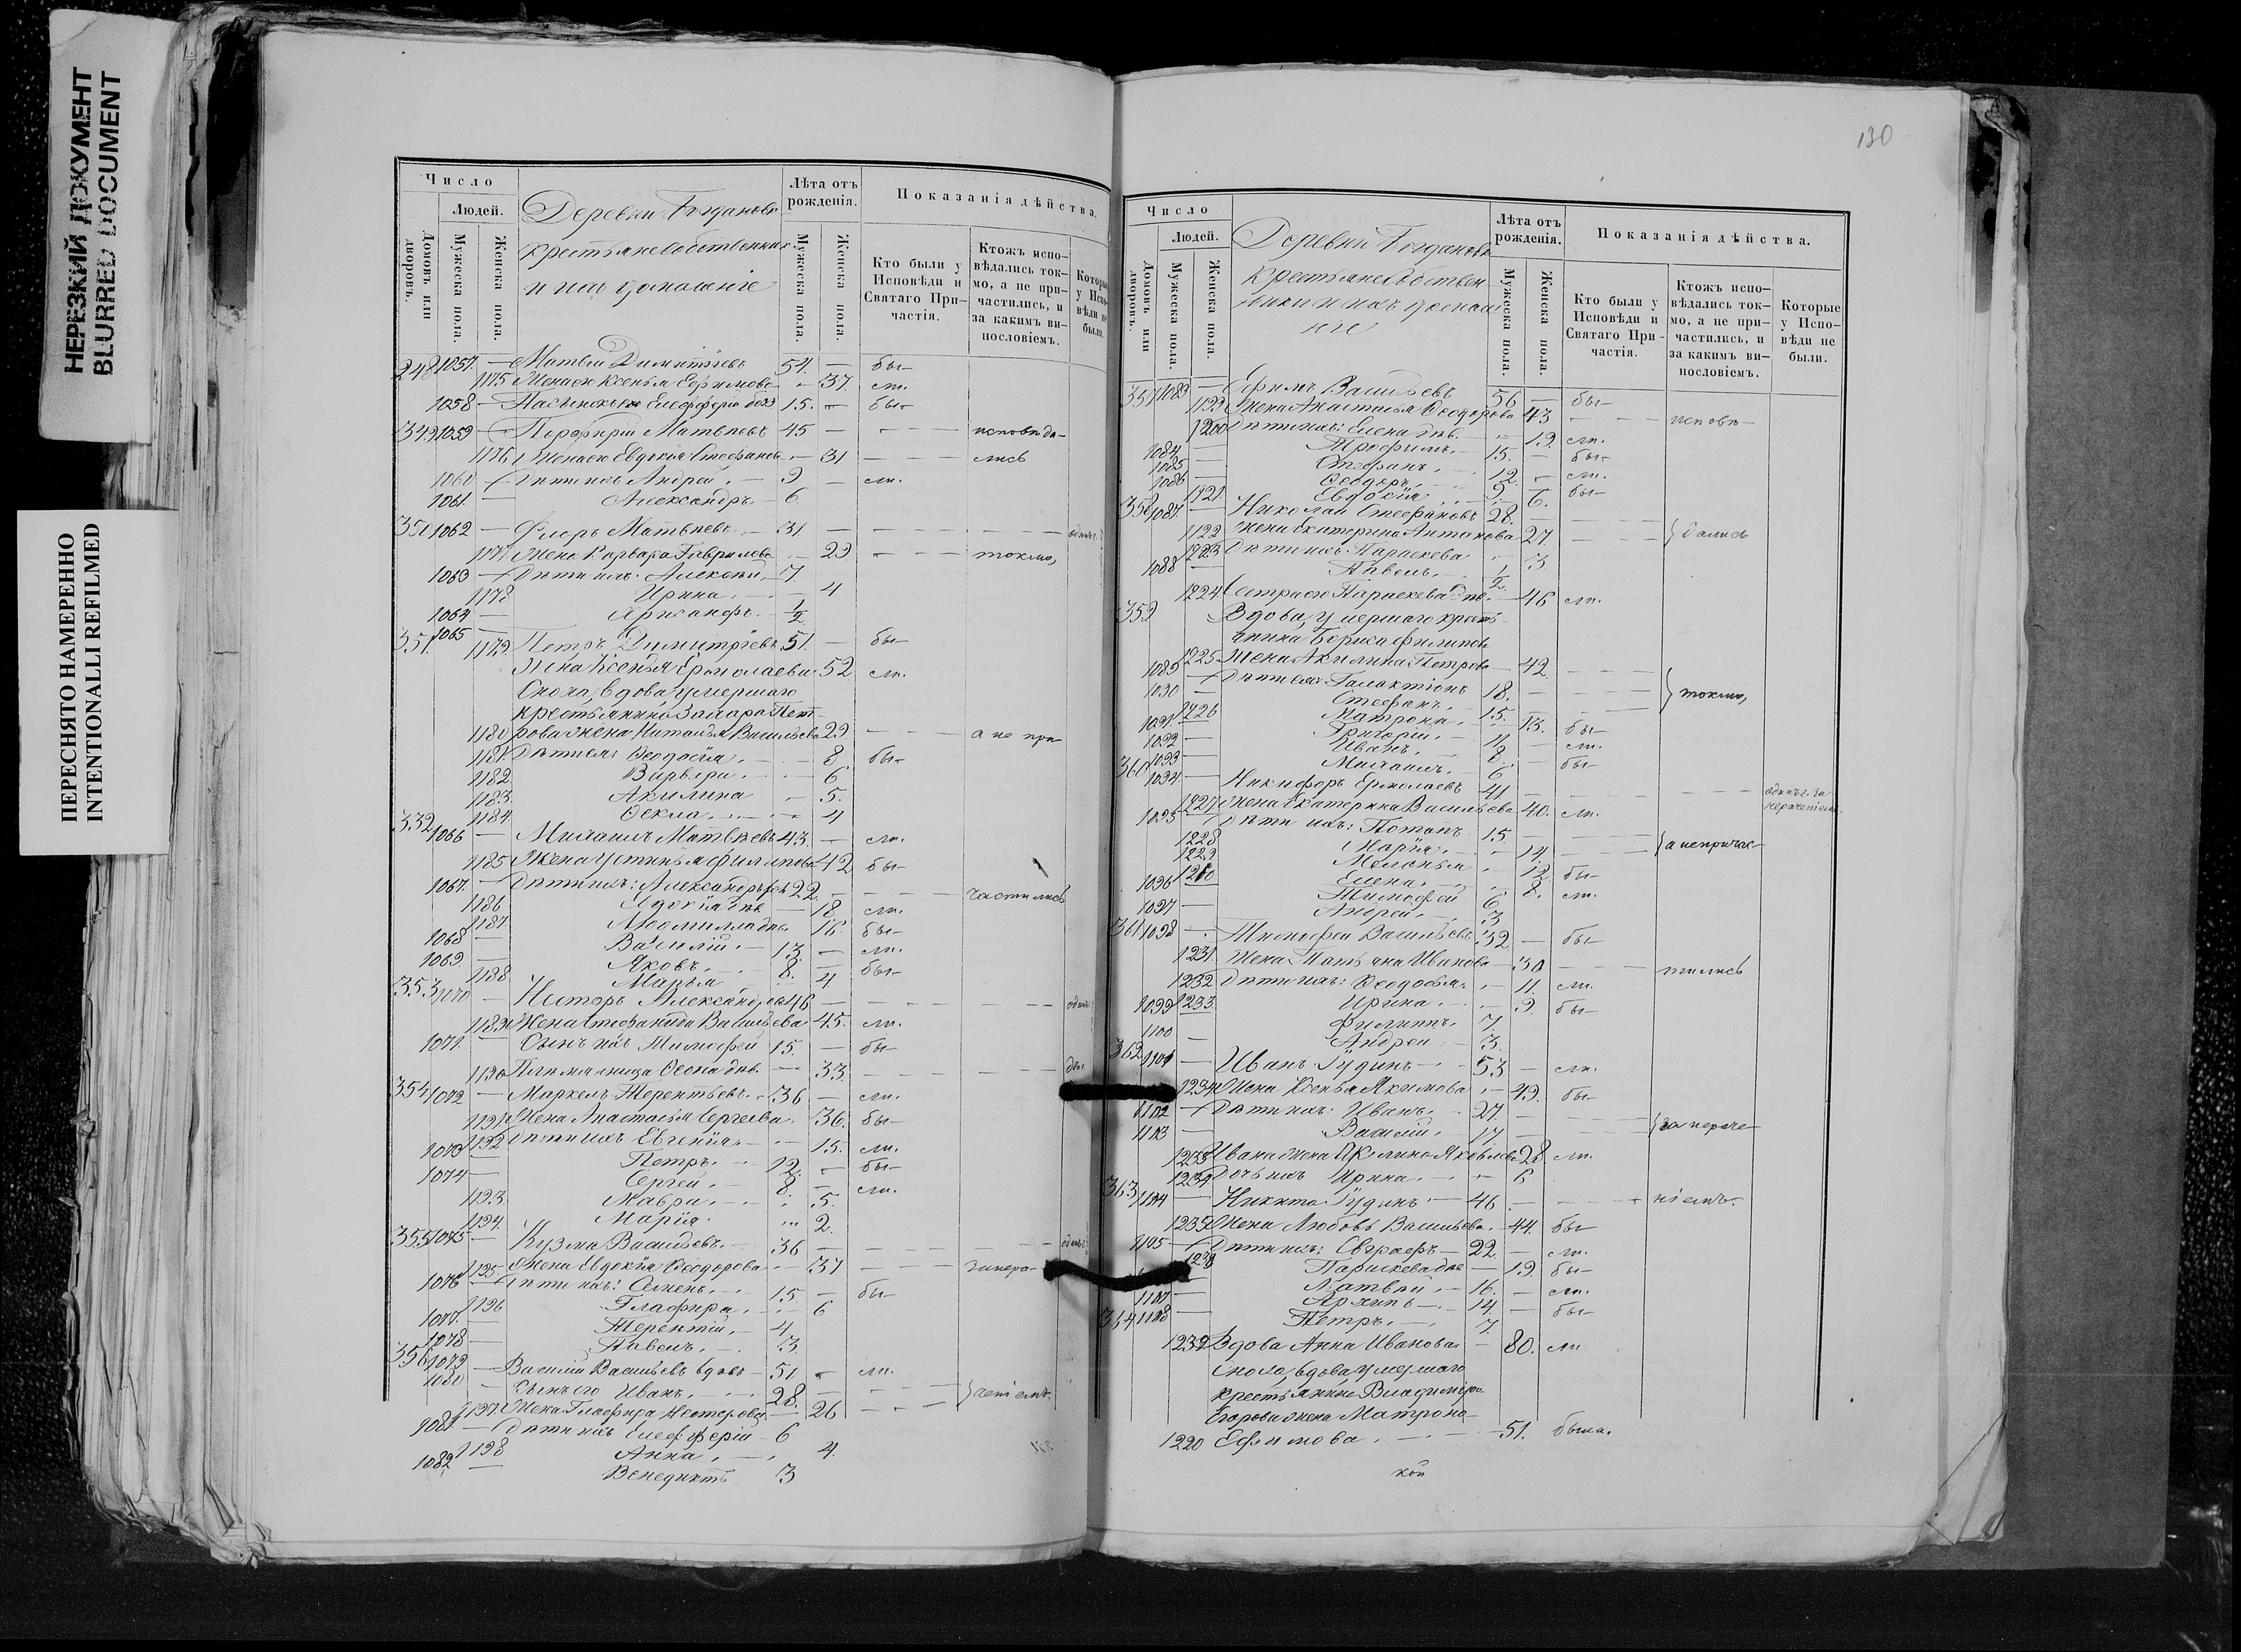 НЕРЕЗКИЙ ДОКУМЕНТ
BLURRED DOCUMENT
ПЕРЕСНЯТО НАМЕРЕННО
INTENTIONALLI REFILMED
Число
Людей.
Домовъ или дворовъ.
Мужеска пола.
Женска пола.
Деревни Богданов
крестьяне собственник
и ихъ домашніе
Лѣта отъ рожденія.
Мужеска пола.
Женска пола.
Показанія дѣйства.
Кто были у Исповѣди и Святаго Причастія.
Ктожъ исповѣдались токмо, а не причастились, и за какимъ винословіемъ.
Которые у Исповѣди не были.
248 1057 — Матвеи Димитріевъ 54. — бы—
1175 Жена его Ксенья Ефимова — 37. ли.
1058 — Пасынокъ Елефферіи 15. — бы—
349 1059 — Порфирій Матвѣевъ 45 — — — исповѣда—
1176 Жена его Евдокія Стефанова — 31 — — лись
1060 — Дѣти ихъ Андрей 9 — ли.
1061 — Александръ 6
350 1062 — Флоръ Матвѣевъ 31 — — — —
1177 Жена Варвара Гаврилова — 29 — — токмо,
1063 — Дѣти ихъ: Алексѣй 7
1178 Ирина 4
1064 — 1/2
351 1065 — Петръ Димитріевъ 51. — бы—
1179 Жена Ксенья Ермолаева 52 ли.
Сноха, вдова умершаго
крестьянина Захара Пет—
1180 рова жена Наталья Васильева 29 — — а не при
1181 Дѣти ея: Ѳеодосія — 8 бы—
1182 Варвара — 6
1183 Акилина — 5.
1184 Ѳекла — 4
332 1066 — Михаилъ Матвѣевъ 43. — ли.
1185 Жена Устинья Филипова 42 бы—
1067 — Дѣти ихъ: Александръ 22 — — — частились
1186 Авдокія дѣв. — 18 ли.
1187 Людмилла дѣв. 16. бы—
1068 — Василій 13. — ли.
1069 — Яковъ 8. — бы—
1188 Марья 4
353 1070 — Несторъ Александровъ 46 — — — —
1189 Жена Стефанида Васильева 45. ли.
1071. — Сынъ ихъ Тимофей 15. — бы—
1190 Племянница дѣв. — 33. — — —
354 1072 — Маркелъ Терентьевъ 36 — ли.
1191 Жена Анастасья Сергеева 36. бы—
1192 Дѣти ихъ Евгенія 15. ли.
1073 — Петръ 12. — бы—
1074 — Сергей 8. — ли.
1193 Мавра 5.
1194. Марія 2.
355 1075 — Кузма Васильевъ 36 — — — —
1195 Жена Евдокія Ѳеодорова — 37 — — за нера—
1076 — Дѣти ихъ: Семенъ 15 — бы—
1196 Глафира 6
1077 — Терентій 4.
1078 — Павелъ 3.
356 1079 — Василій Васильевъ вдовъ 51 — ли.
1080 — Сынъ его Иванъ 28. — — —
1197 Жена Глафира Нестерова — 26 — —
1081 — Дѣти ихъ Елефферій 6
1198 Анна 4.
1082 — Венедиктъ 3
130
Число
Людей.
Домовъ или дворовъ.
Мужеска пола.
Женска пола.
Деревни Богданов
крестьяне собствен—
ники и ихъ домаш
ніе
Лѣта отъ рожденія.
Мужеска пола.
Женска пола.
Показанія дѣйства.
Кто были у Исповѣди и Святаго Причастія.
Ктожъ исповѣдались токмо, а не причастились, и за какимъ винословіемъ.
Которые у Исповѣди не были.
357 1083 — Ефимъ Васильевъ 56 — бы—
1199 Жена Анастасья Ѳеодорова 43 — — исповѣ—
1200 Дѣти ихъ: Елена дѣв. — 19. ли.
1084 — Трофимъ 15. — бы—
1085 — Стефанъ 12 — ли.
1086 — Ѳеодоръ 9 — бы—
1121 Евдокія — 6.
358 1087 — Николай Стефановъ 28. — — —
1122 Жена Екатерина Антонова 27 — — дались
1223 Дѣти ихъ. Параскева — 3
1088 — Павелъ 1/2
1224 Сестра его Параскева дѣв. — 46 ли.
359 Вдова, умершаго кресть—
янина Бориса Филипова
1225 Жена Акилина Петрова 42. — —
1089 — Дѣти ея: Галактіонъ 18. — — — токмо,
1090 — Стефанъ 15.
1226 Матрона — 13. бы—
1091 — Григорій 11 — ли.
1092 — Иванъ 8. — бы—
1093 — Михаилъ 6
360 1094 — Никифоръ Ермолаевъ 41 — — —
1227 Жена Екатерина Васильева 40. ли.
1095 — Дѣти ихъ: Потапъ 15 — —
1228 Марія — 14. — а непричас—
1229 Меланья 12 бы—
1230 Елена 8. ли.
1096 — Тимофей 6
1097 — Андрей 3
361 1098 — Тимофей Васильевъ 32 — бы—
1231. Жена Татьяна Иванова — 30 — — тились
1232 Дѣти ихъ: Ѳеодосья — 11. ли.
1233 Ирина — 9. бы—
1099 — Филиппъ 7.
1100 — Андрей 3.
362 1101 — Иванъ Гудинъ 53 — ли.
1234 Жена Ксенья Якимова — 49. бы—
1102 — Дѣти ихъ: Иванъ 27. — —
1103 — Василій 17. — — за нераче—
1235 Ивана жена Акилина Яковлева 28 ли.
Дочь ихъ Ирина — 6
363 1104 — Никита Гудинъ 46 — — ніемъ.
1235 Жена Любовь Васильева 44. бы—
1105 — Дѣти ихъ: Евграфъ 22 — ли.
Параскева дѣв — 19. бы—
Матвѣй 16. — ли.
1107 — Архипъ 14. — бы—
364 1108 — Петръ 7.
1239 Вдова Анна Иванова — 80. ли
Сноха, вдова, умершаго
крестьянина Владиміра
Егорова жена Матрона
1220 Ефимова — 51. была.
кой